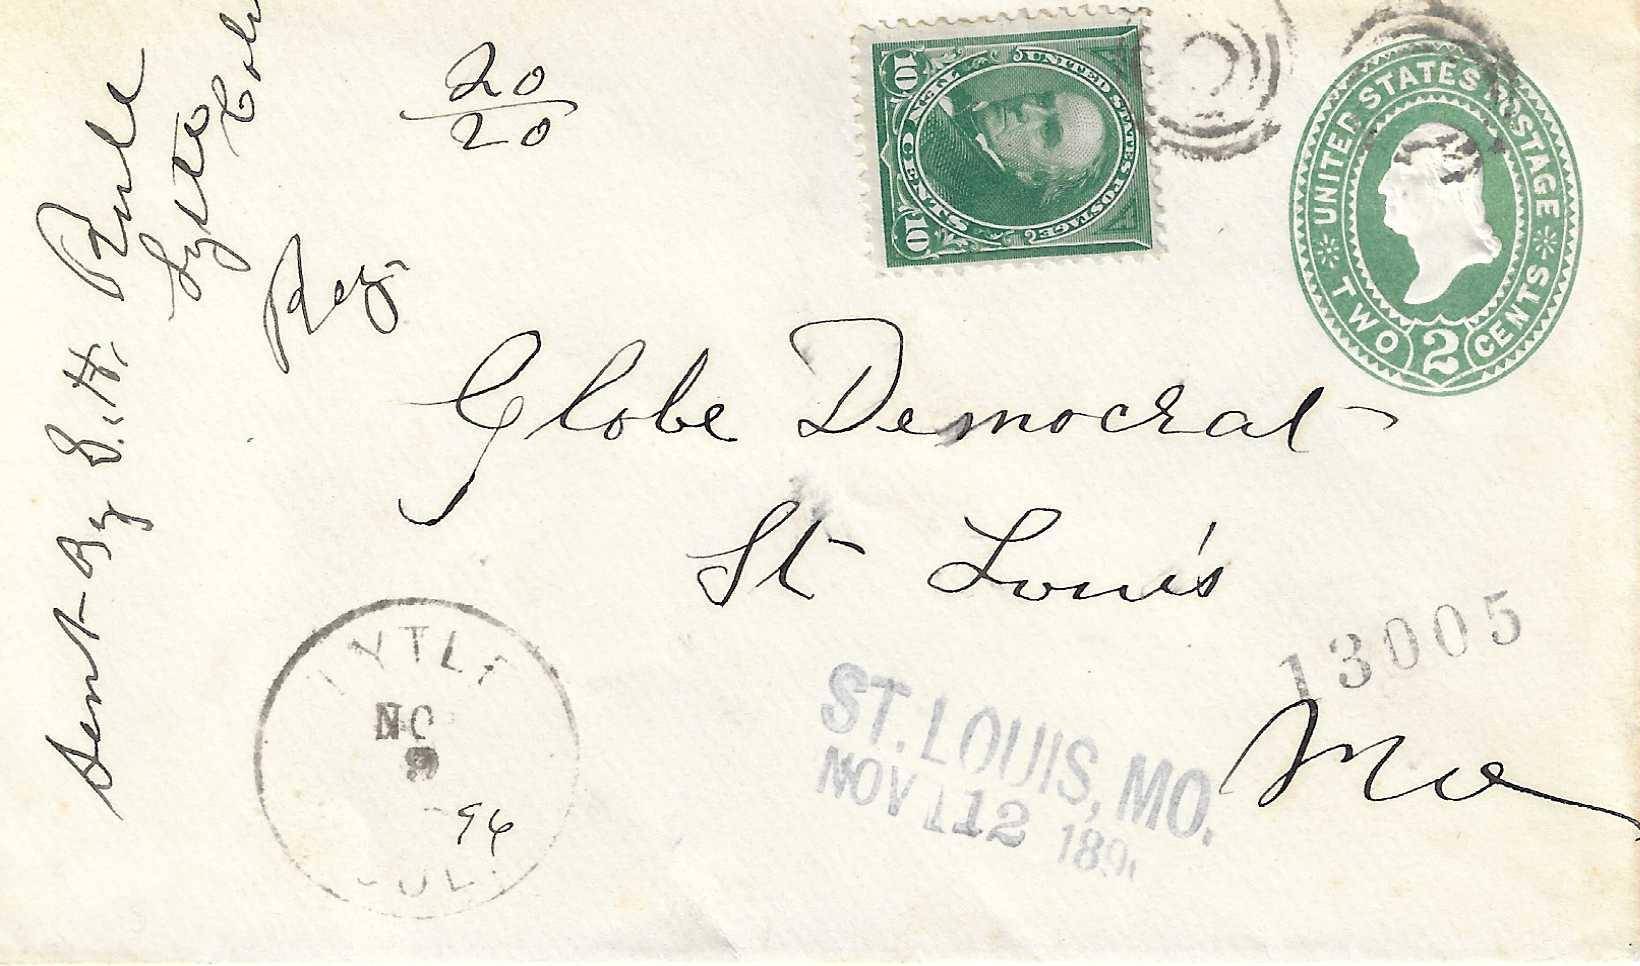 Sent By S. H. Rule
Lytle
Colo
20
20
Reg.
UNITED STATES POSTAGE
TEN CENTS
10 10
UNITED STATES POSTAGE
TWO CENTS
2
Globe Democrat
St Louis
Mo
13005
LYTLE
NO
9
96
COL.
ST. LOUIS, MO.
NOV 12 189